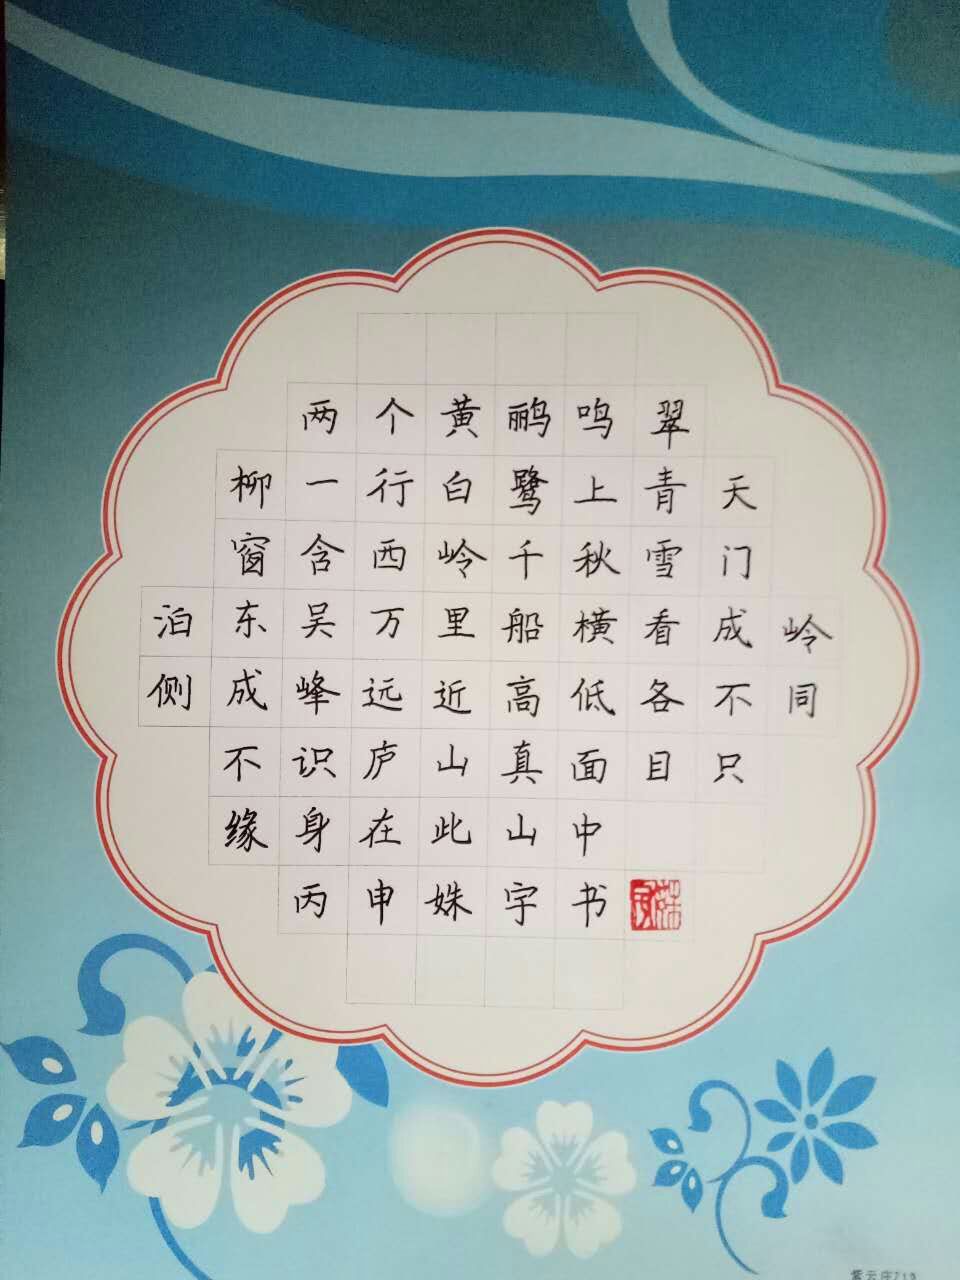 两个黄鹂鸣翠
柳一行白鹭上青天
窗含西岭千秋雪门
泊东吴万里船横看成岭
侧成峰远近高低各不同
不识庐山真面目只
缘身在此山中
丙申姝宇书